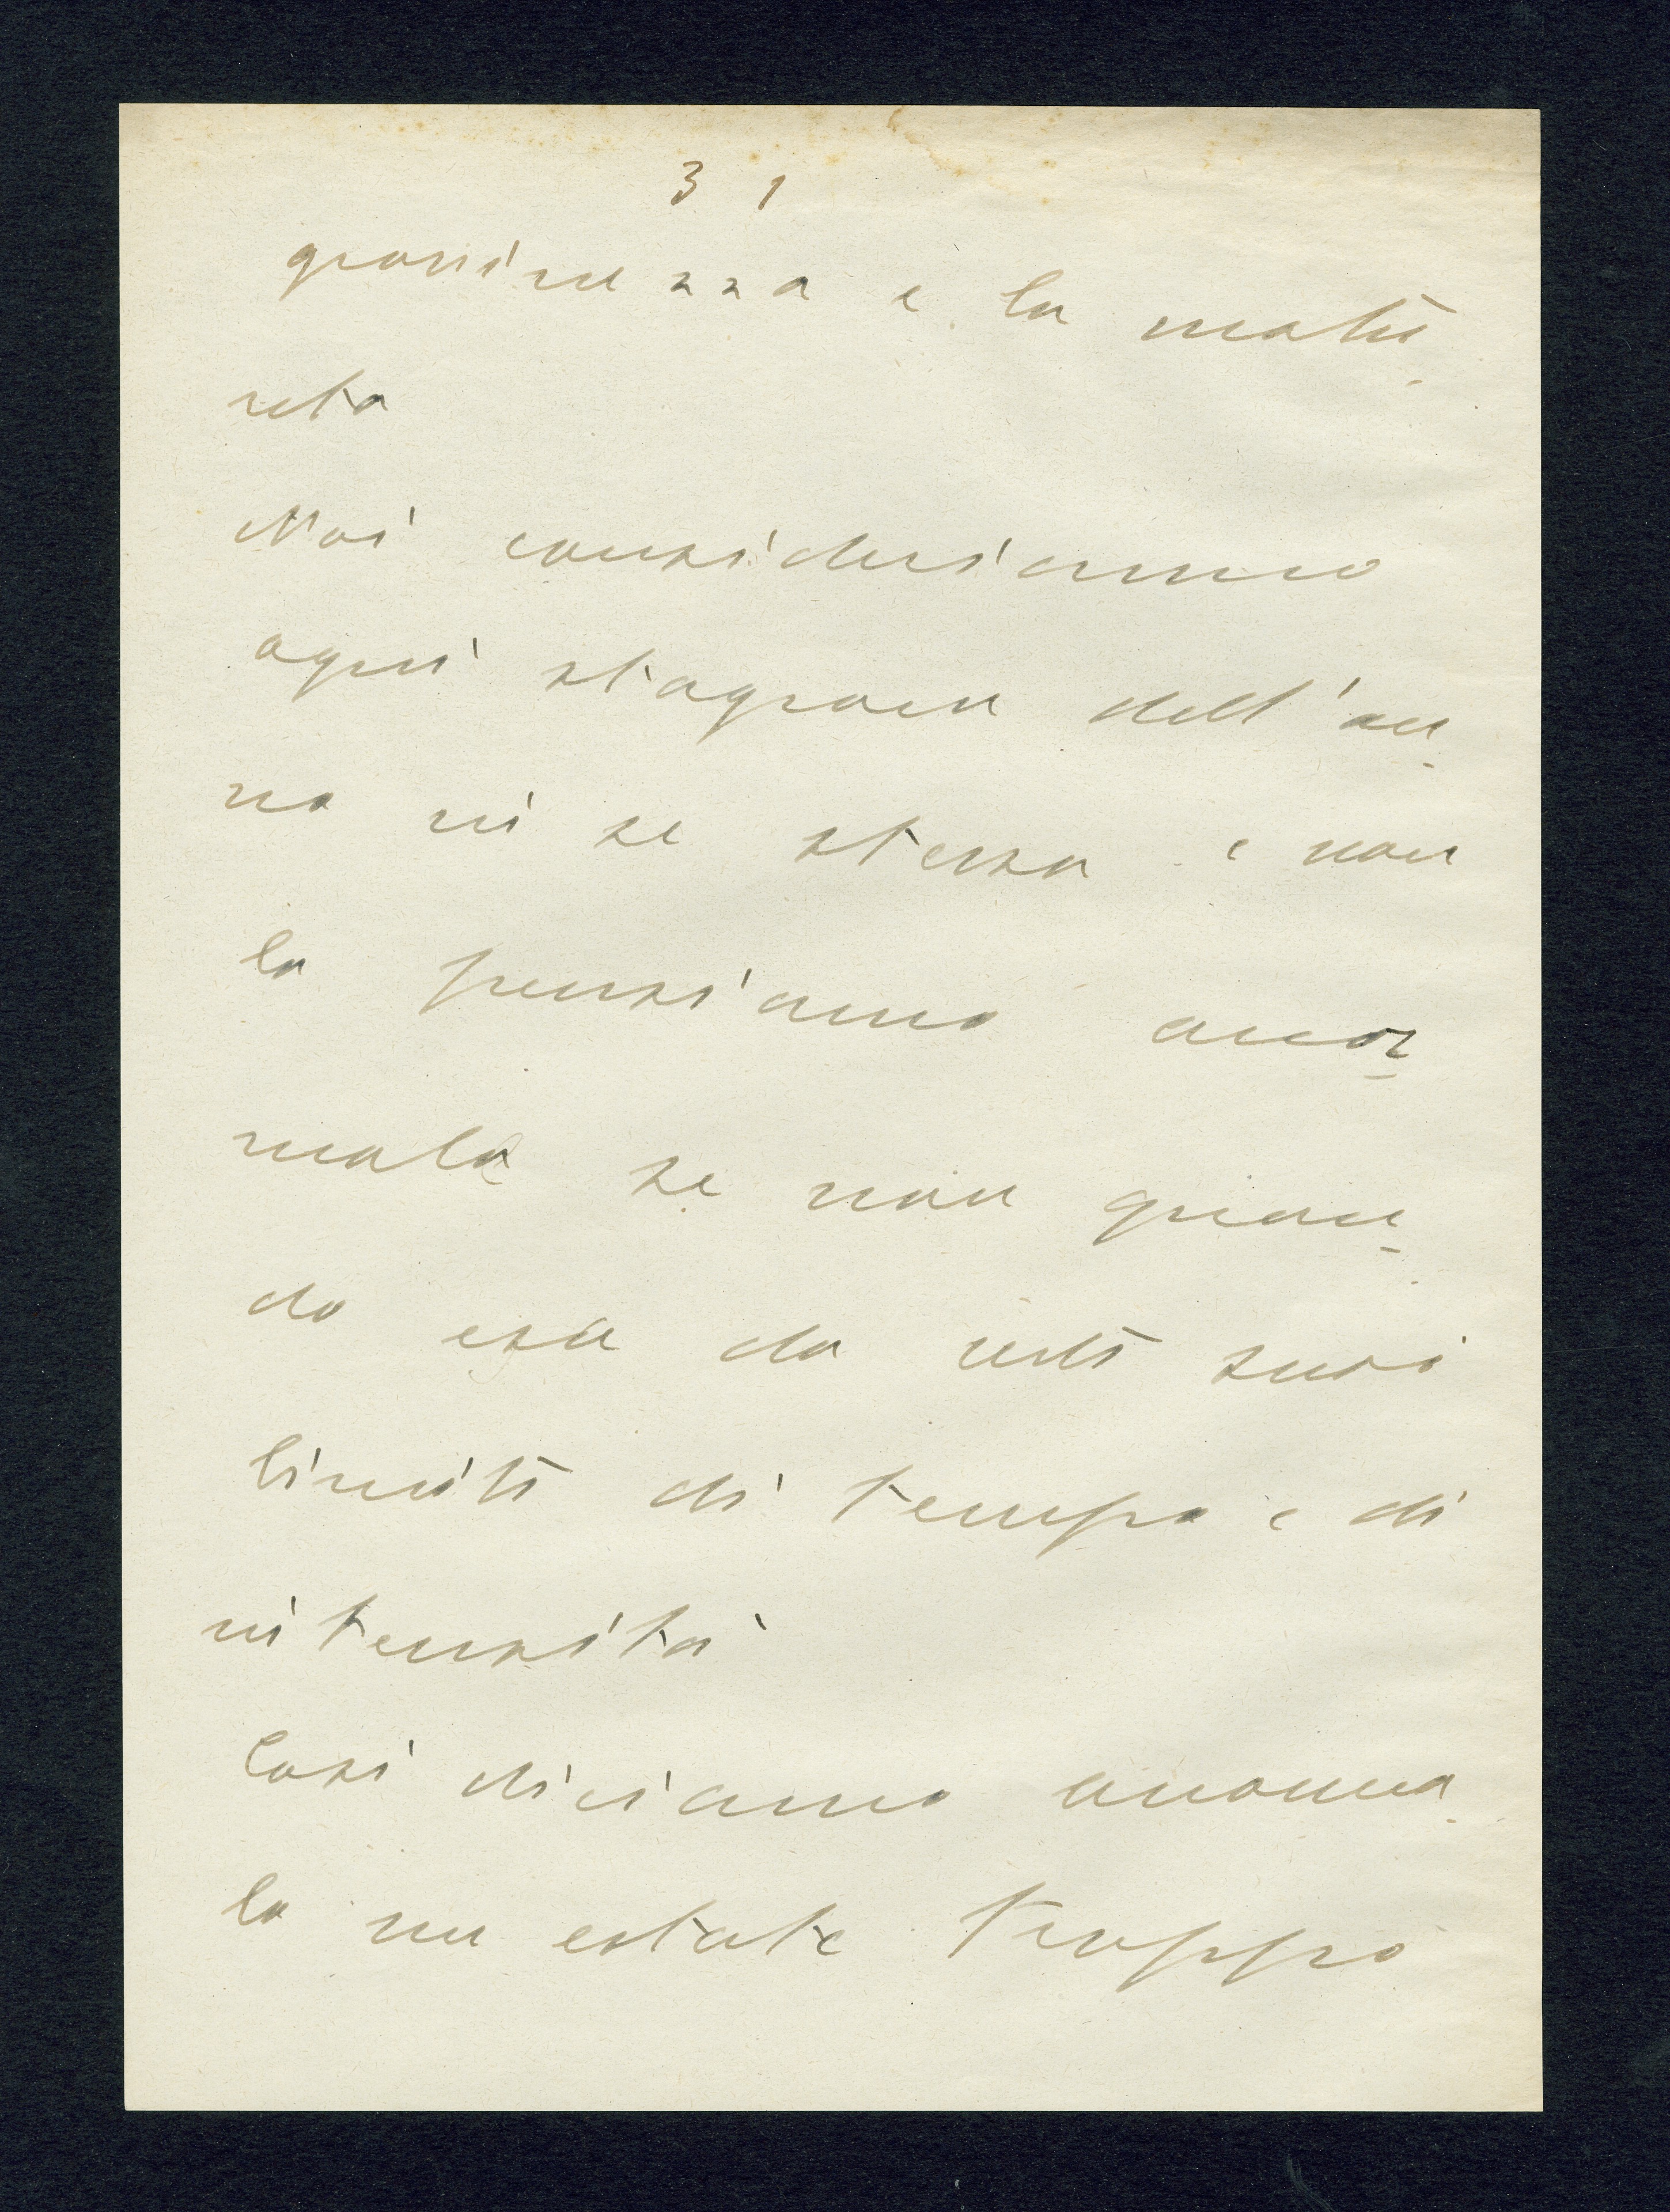 31
giovinezza e la matu-
rità
Noi consideriamo
ogni stagione dell'an-
no in se stessa e non
la pensiamo anor-
male se non quan-
do esce da certi suoi
limiti di tempo e di
intensità
Così diciamo anorma-
le un estate troppo